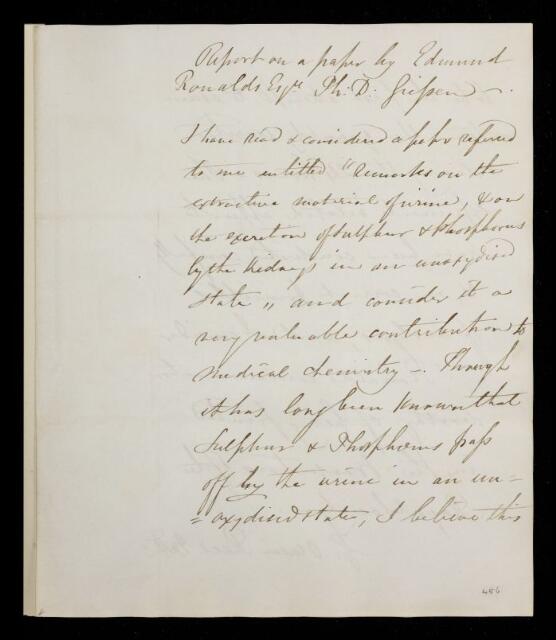 Report on a paper by Edmund
Ronalds Esqre Ph: D: Giessen —.
I have read & considered a paper referred
to me entitled "Remarks on the
extractive material of urine, & on
the excretion of Sulphur & Phosphorus
by the Kidneys in an unoxydised
state" and consider it a
very valuable contribution to
Medical Chemistry —. Though
it has long been known that
Sulphur & Phosphorus pass
off by the urine in an un=
=oxydised state, I believe this
486